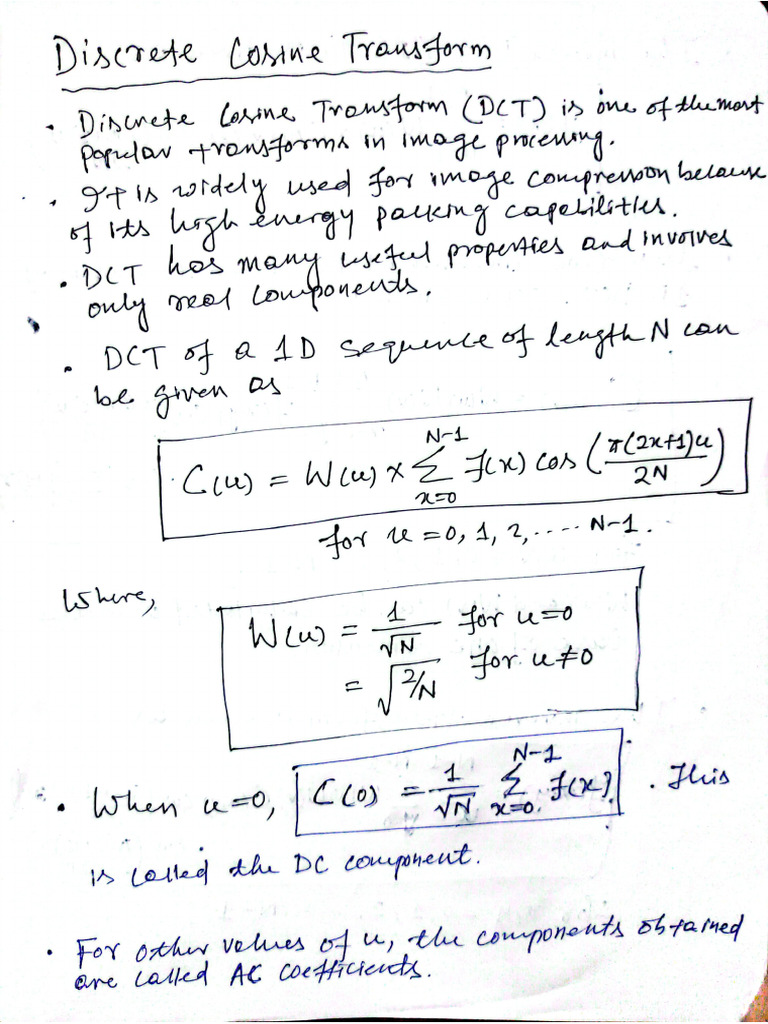 Discrete Cosine Transform
• Discrete Cosine Transform (DCT) is one of the most
popular transforms in image processing.
• It is widely used for image compression because
of its high energy packing capabilities.
• DCT has many useful properties and involves
only real components.
• DCT of a 1D sequence of length N can
be given as
C(u) = W(u) × ∑_{x=0}^{N-1} f(x) cos (π(2x+1)u / 2N)
for u = 0, 1, 2, ..... N-1.
Where,
W(u) = 1/√N for u=0
= √(2/N) for u≠0
• When u=0, C(0) = 1/√N ∑_{x=0}^{N-1} f(x). This
is called the DC component.
• For other values of u, the components obtained
are called AC coefficients.